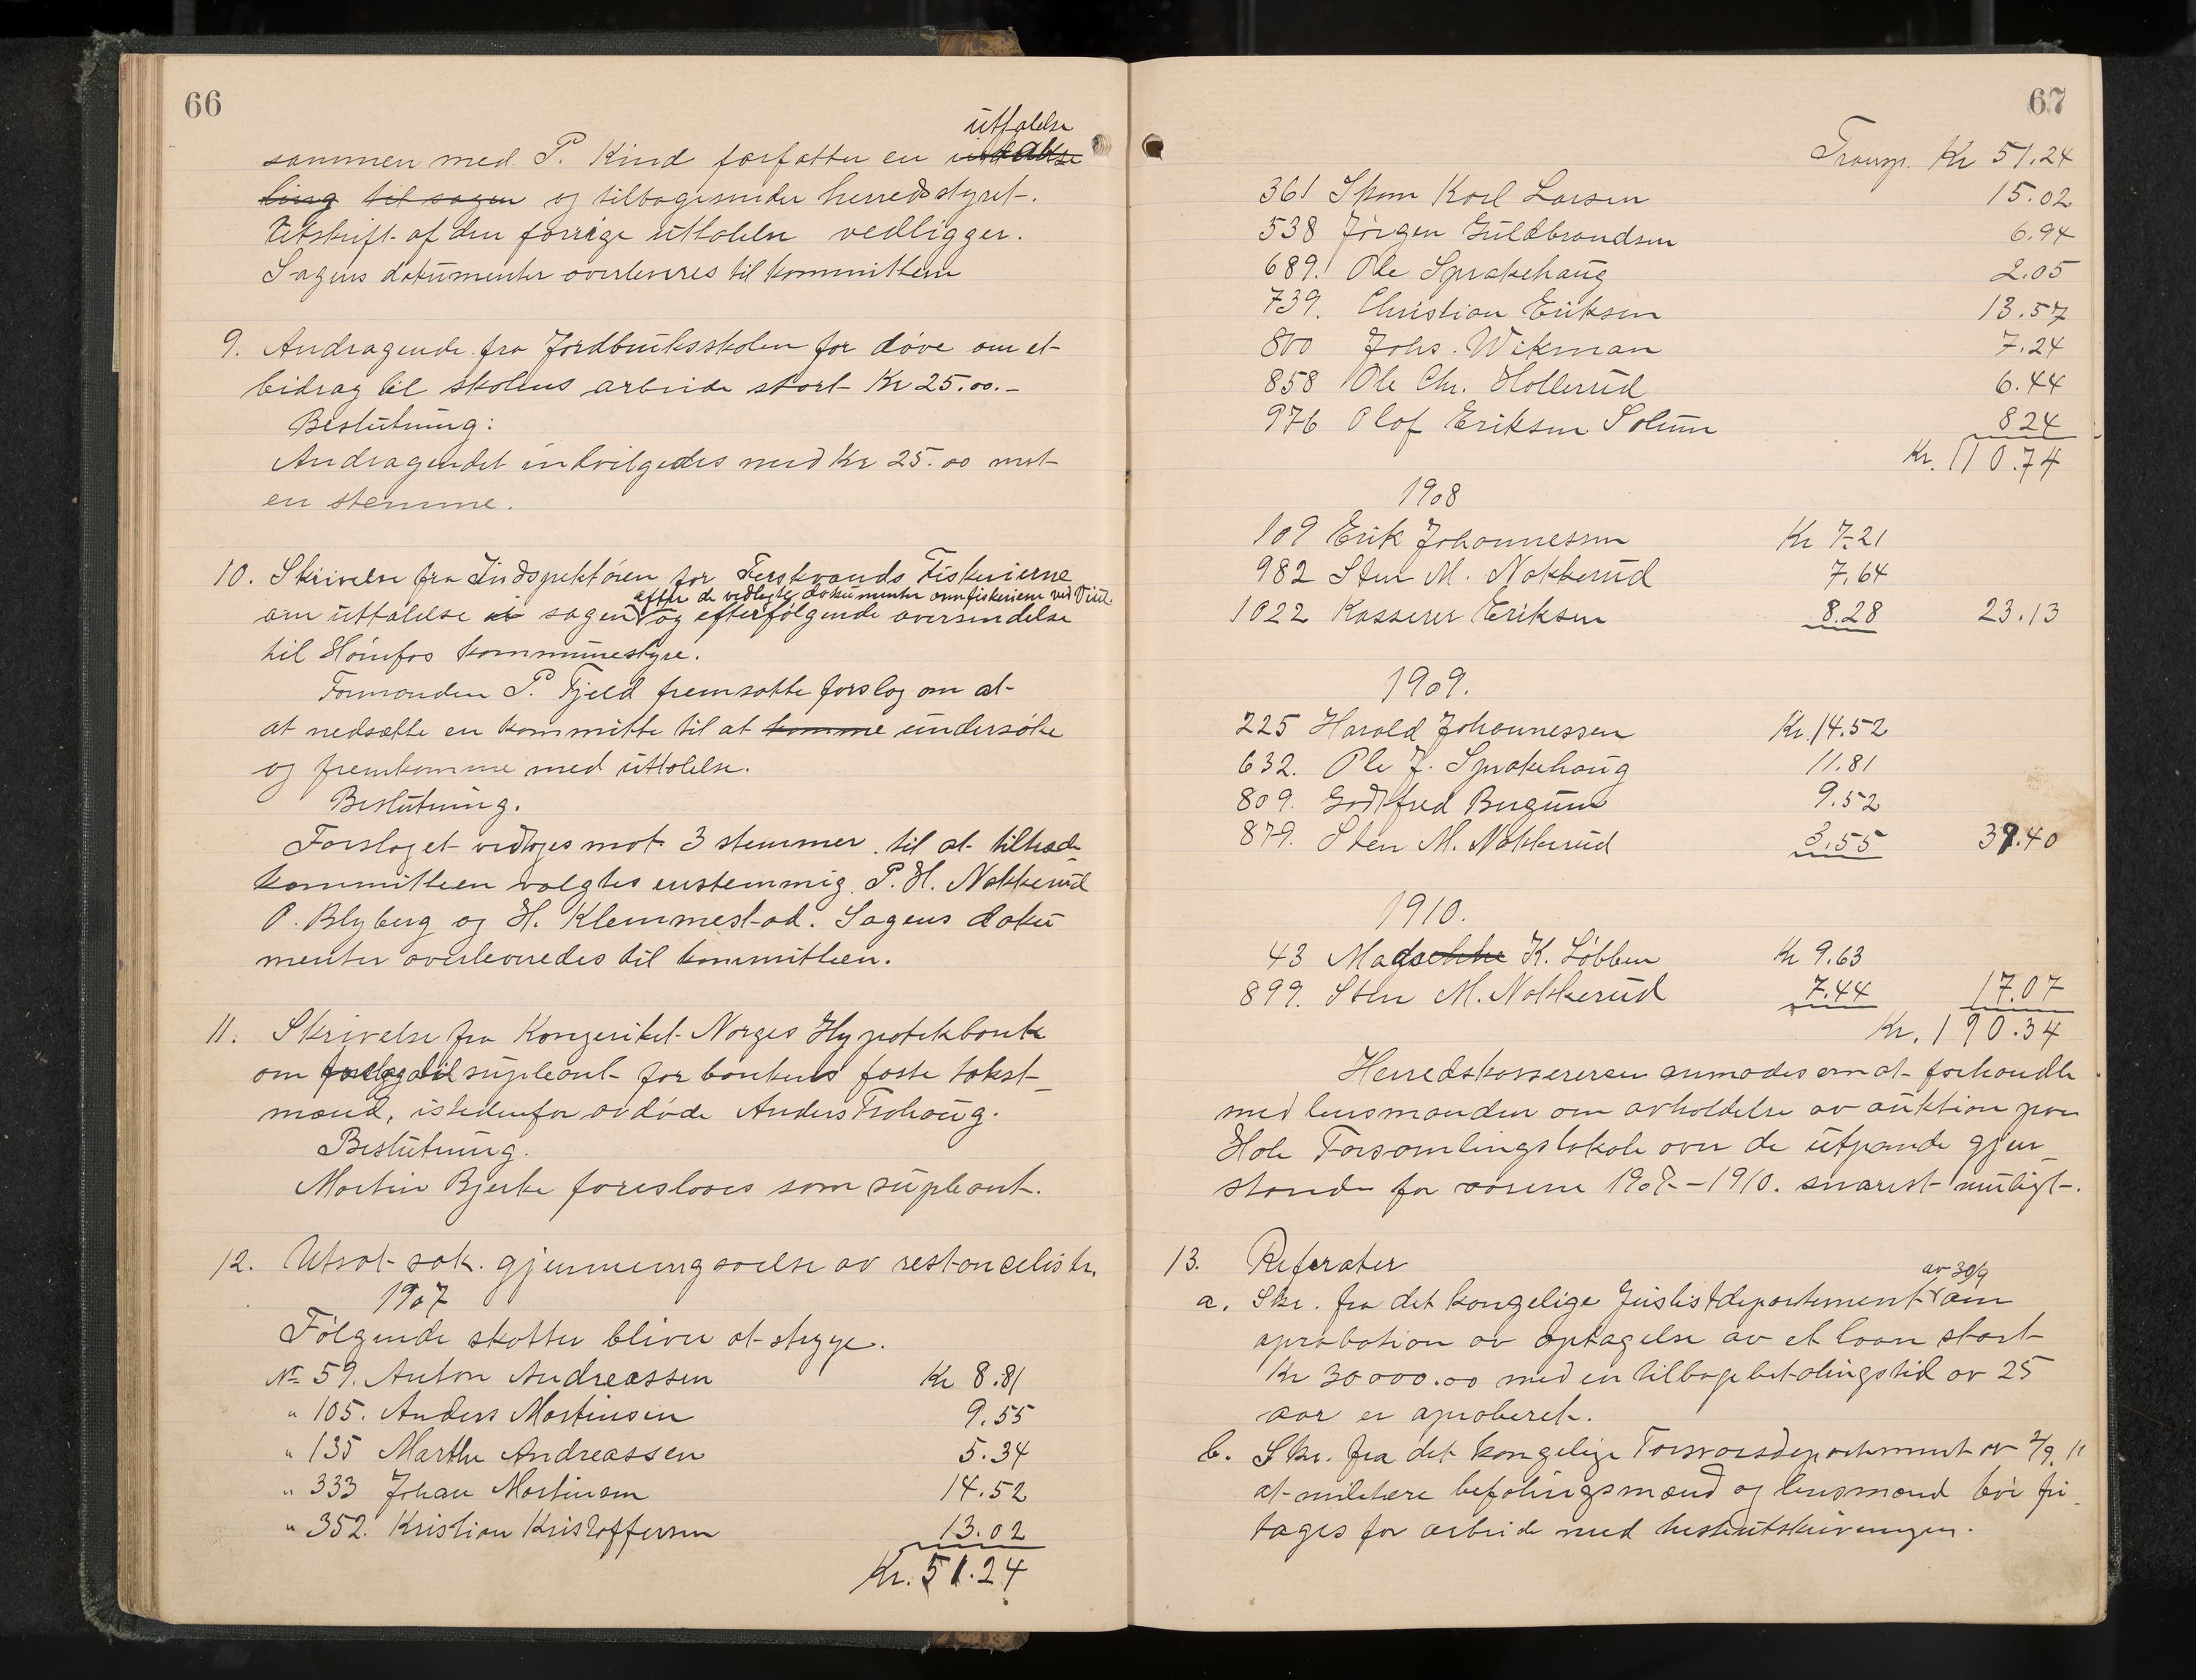 66
uttalelse
sammen med P. Kind forfatter en
ling til sagen og tilbagesender herredsstyret.
Utskrift af den forrige uttalelse vedligger.
Sagens dokumenter overleveres til kommitteen
9. Andragende fra Jordbruksskolen for døve om et
bidrag til skolens arbeide stort Kr 25.00.-
Beslutning:
Andragendet indvilgedes med Kr 25.00 mot
en stemme.
10. Skrivelse fra Indspektøren for Ferskvands Fiskerierne
efter de vedlagte dokumenter om fiskeriene ved Viul.
om uttalelse i sagen og efterfølgende oversendelse
til Hønefos kommunestyre.
Formanden P. Fjeld fremsatte forslag om at
at nedsætte en kommitte til at komme undersøke
og fremkomme med uttalelse.
Beslutning.
Forslaget vedtages mot 3 stemmer til at tiltræde
kommitteen valgtes enstemmig P. H. Nakkerud
O. Blyberg og H. Klemmestad. Sagens doku
menter overleveredes til kommitteen.
11. Skrivelse fra Kongeriket Norges Hypotekbank
om forslag til supleant for bankens faste takst-
mænd, istedenfor avdøde Anders Trohaug.
Beslutning.
Martin Bjerke foreslaaes som supleant.
12. Utsat sak. gjennemgaaelse av restancelister
1907
Følgende skatter bliver at stryge.
No 59. Anton Andreassen Kr 8.81
" 105. Anders Martinsen 9.55
" 135 Marthe Andreassen 5.34
" 333 Johan Martinsen 14.52
" 352. Kristian Kristoffersen 13.02
Kr. 51.24
67
Transp. Kr 51.24
361 Skom Karl Larsen 15.02
538 Jørgen Guldbrandsen 6.94
689. Ole Sprakehaug 2.05
739. Christian Eriksen 13.57
800 Johs. Wikman 7.24
858 Ole Chr. Hollerud 6.44
976 Olof Eriksen Solum 824
Kr. 110.74
1908
109 Erik Johannessen Kr 7.21
982 Sten M. Nakkerud 7.64
1022 Kasserer Eriksen 8.28 23.13
1909.
225 Harald Johannessen Kr. 14.52
632. Ole J. Sprakehaug 11.81
809. Godtfred Burgum 9.52
879. Sten M. Nakkerud 3.55 39.40
1910.
43 K. Løbben Kr 9.63
899. Sten M. Nakkerud 7.44 17.07
Kr. 190.34
Herredskassereren anmodes om at forhandle
med lensmanden om avholdelse av auktion paa
Hole Forsamlingslokale over de utpante gjen
stande for aarene 1907-1910. snarest muligt.
13. Referater
av 30/9
a. Skr. fra det kongelige Justistdepartement om
aprobation av optagelse av et laan stort
Kr 30000.00 med en tilbagebetalingstid av 25
aar er aproberet.
b. Skr. fra det kongelige Forsvarsdepartement av 2/9. 11
at militære befalingsmænd og lensmænd bør fri
tages for arbeide med hesteutskrivningen.